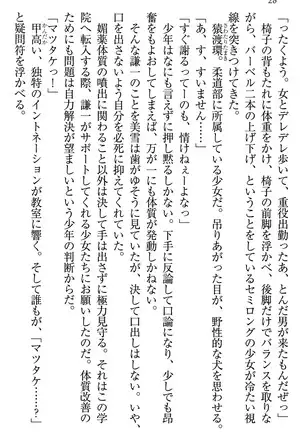 28
「ったくよう。女とデレデレ歩いて、重役出勤とは、とんだ男が来たもんだぜっ」
椅子の背もたれに体重をかけ、椅子の前脚を浮かべ、後脚だけでバランスを取りな
がら、バーベル二本の上げ下げ、ということをしているセミロングの少女が冷たい視
線を突きつけてきた。
猿渡環。柔道部に所属している少女だ。吊りあがった目が、野性的な犬を思わせる。
「あ、す、すいません……」
「すぐ謝るってーのも、情けねぇーよなっ」
少年はなにも言えずに押し黙るしかない。下手に反論して口論になり、少しでも昂
奮をもよおしてしまえば、万が一にも体質が発動しかねない。
そんな謙一のことを美雪は歯がゆそうに見ていたが、決して口出しはしない。いや、
口を出さないよう自分を必死に抑えてくれていた。
媚薬体質の噴出に関わること以外は決して手は出さずに極力見守る。それはこの学
院へ転入する際、謙一がサポートしてくれる少女たちにお願いしたのだ。体質改善の
ためにも問題は自力解決が望ましいという少年の判断からだ。
「マツタケっ！」
甲高い、独特のイントネーションが教室に響く。そして誰もが、「マツタケ……？」
と疑問符を浮かべる。